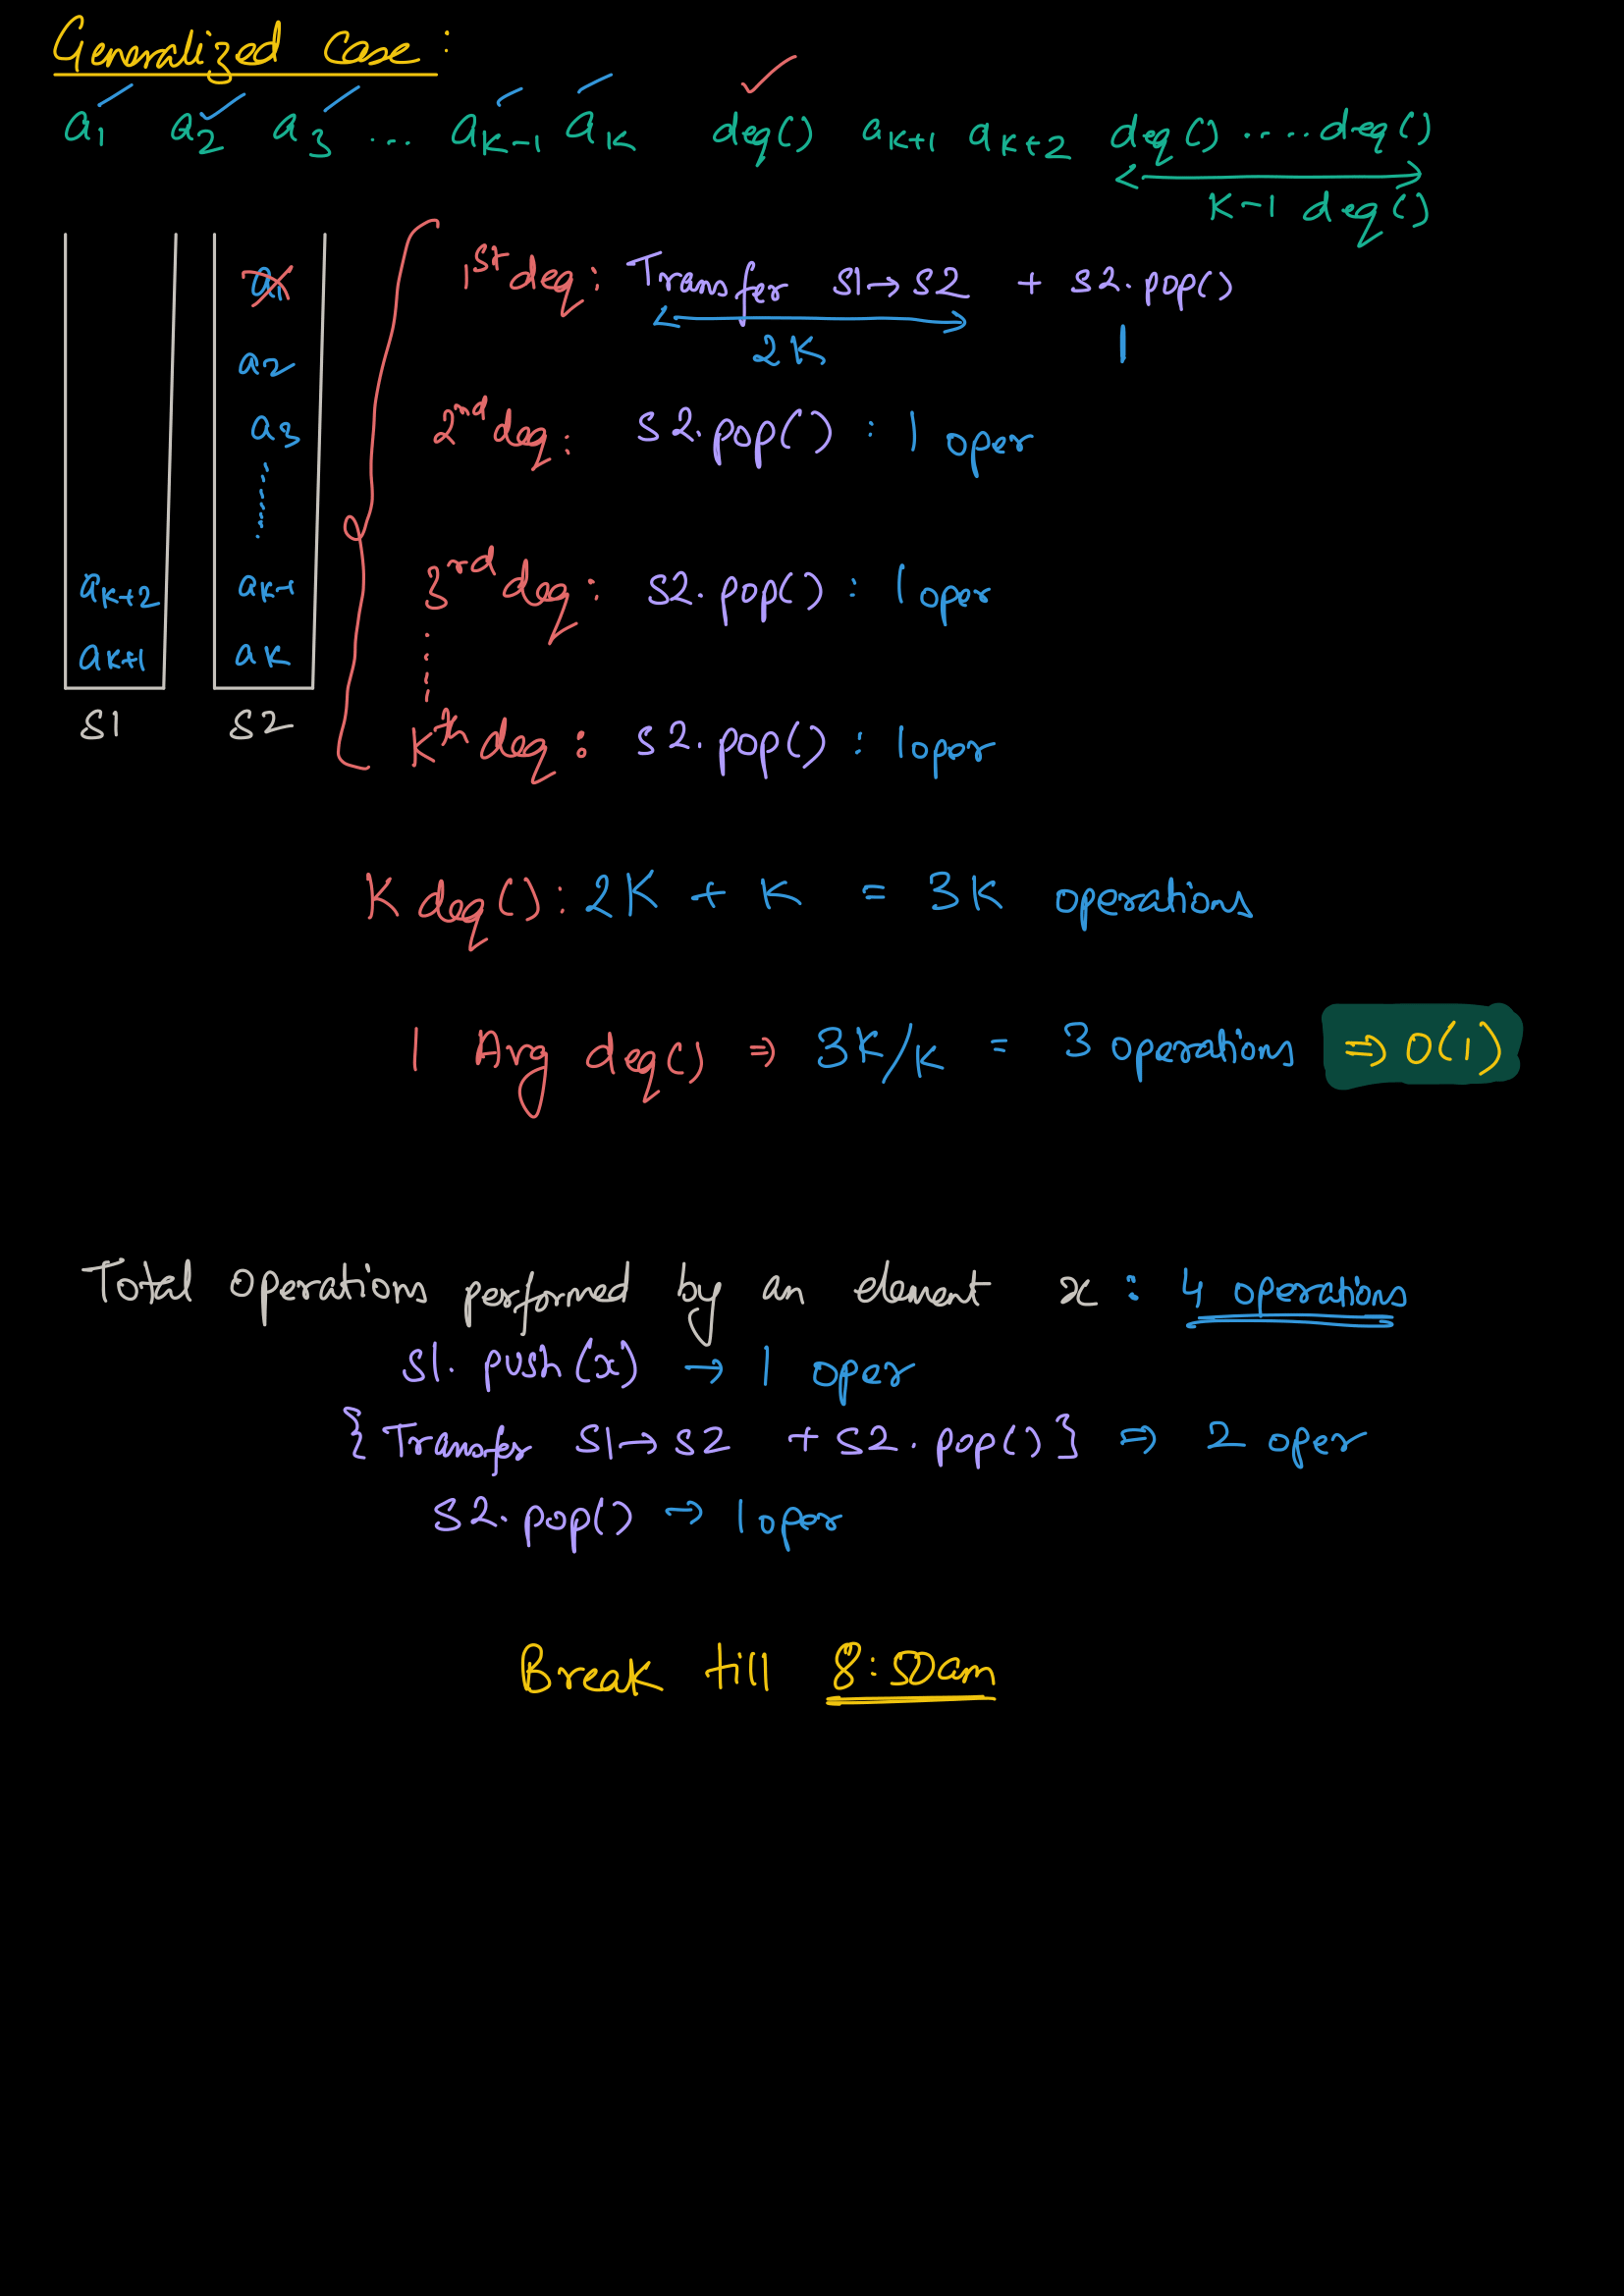 Generalized Case:
a1 a2 a3 ... aK-1 aK deq() aK+1 aK+2 deq() .... deq()
K-1 deq()
a1
a2
a3
aK-1
aK
S2
aK+2
aK+1
S1
1st deq: Transfer S1→S2 + S2.pop()
2K 1
2nd deq: S2.pop() : 1 oper
3rd deq: S2.pop() : 1 oper
Kth deq: S2.pop() : 1 oper
K deq(): 2K + K = 3K operations
1 Avg deq() ⇒ 3K/K = 3 operations ⇒ O(1)
Total operations performed by an element x : 4 operations
S1. push(x) → 1 oper
{Transfer S1→S2 + S2.pop()} ⇒ 2 oper
S2.pop() → 1 oper
Break till 8:50am